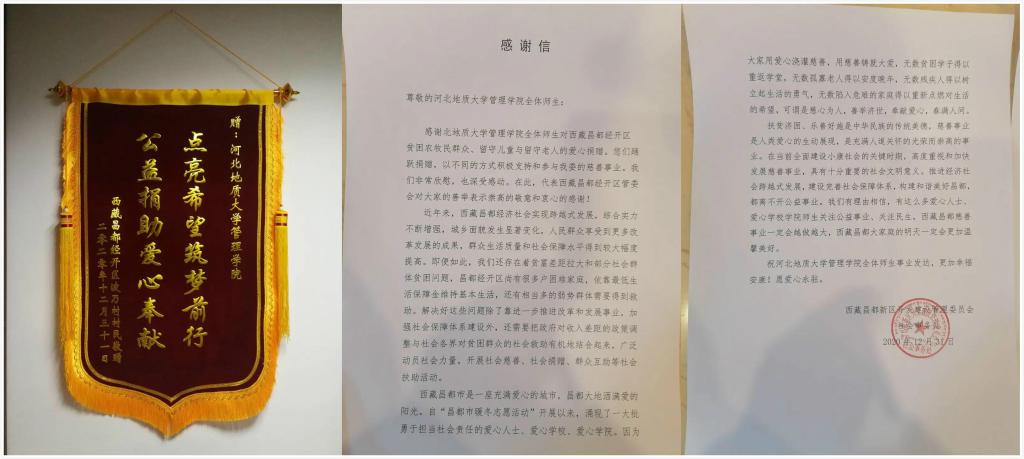 赠：河北地质大学管理学院
点亮希望筑梦前行
公益捐助爱心奉献
西藏昌都经开区波乃村村民敬赠
二零二零年十二月三十一日
感谢信
尊敬的河北地质大学管理学院全体师生：
感谢北地质大学管理学院全体师生对西藏昌都经开区
贫困农牧民群众、留守儿童与留守老人的爱心捐赠。您们踊
跃捐赠，以不同的方式积极支持和参与我委的慈善事业。我
们非常欣慰，也深受感动。在此，代表西藏昌都经开区管委
会对大家的善举表示崇高的敬意和衷心的感谢！
近年来，西藏昌都经济社会实现跨越式发展，综合实力
不断增强，城乡面貌发生显著变化，人民群众享受到更多改
革发展的成果，群众生活质量和社会保障水平得到较大幅度
提高。即便如此，我们还存在着贫富差距拉大和部分社会群
体贫困问题，昌都经开区尚有很多户困难家庭，依靠最低生
活保障金维持基本生活，还有相当多的弱势群体需要得到救
助。解决好这些问题除了靠进一步推进改革和发展事业，加
强社会保障体系建设外，还需要把政府对收入差距的政策调
整与社会各界对贫困群众的社会救助有机地结合起来，广泛
动员社会力量，开展社会慈善、社会捐赠、群众互动等社会
扶助活动。
西藏昌都市是一座充满爱心的城市，昌都大地洒满爱的
阳光。自“昌都市暖冬志愿活动”开展以来，涌现了一大批
勇于担当社会责任的爱心人士、爱心学校、爱心学院。因为
大家用爱心浇灌慈善，用慈善铸就大爱，无数贫困学子得以
重返学堂，无数孤寡老人得以安度晚年，无数残疾人得以树
立起生活的勇气，无数陷入危难的家庭得以重新点燃对生活
的希望。可谓是慈心为人，善举济世，奉献爱心，春满人间。
扶贫济困、乐善好施是中华民族的传统美德，慈善事业
是人类爱心的生动展现，是充满人道关怀的光荣而崇高的事
业。在当前全面建设小康社会的关键时期，高度重视和加快
发展慈善事业，具有十分重要的社会文明意义。推进经济社
会跨越式发展，建设完善社会保障体系，构建和谐美好昌都，
都离不开公益事业。我们有理由相信，有这么多爱心人士、
爱心学校学院师生关注公益事业、关注民生，西藏昌都慈善
事业一定会越做越大，西藏昌都大家庭的明天一定会更加温
馨美好。
祝河北地质大学管理学院全体师生事业发达，更加幸福
安康！愿爱心永驻。
西藏昌都新区开发建设管理委员会
社会事务处
2020年12月31日